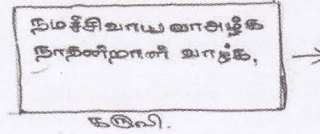 நமச்சிவாய வாஅழ்க
நாதன்றாள் வாழ்க,
கருவி.